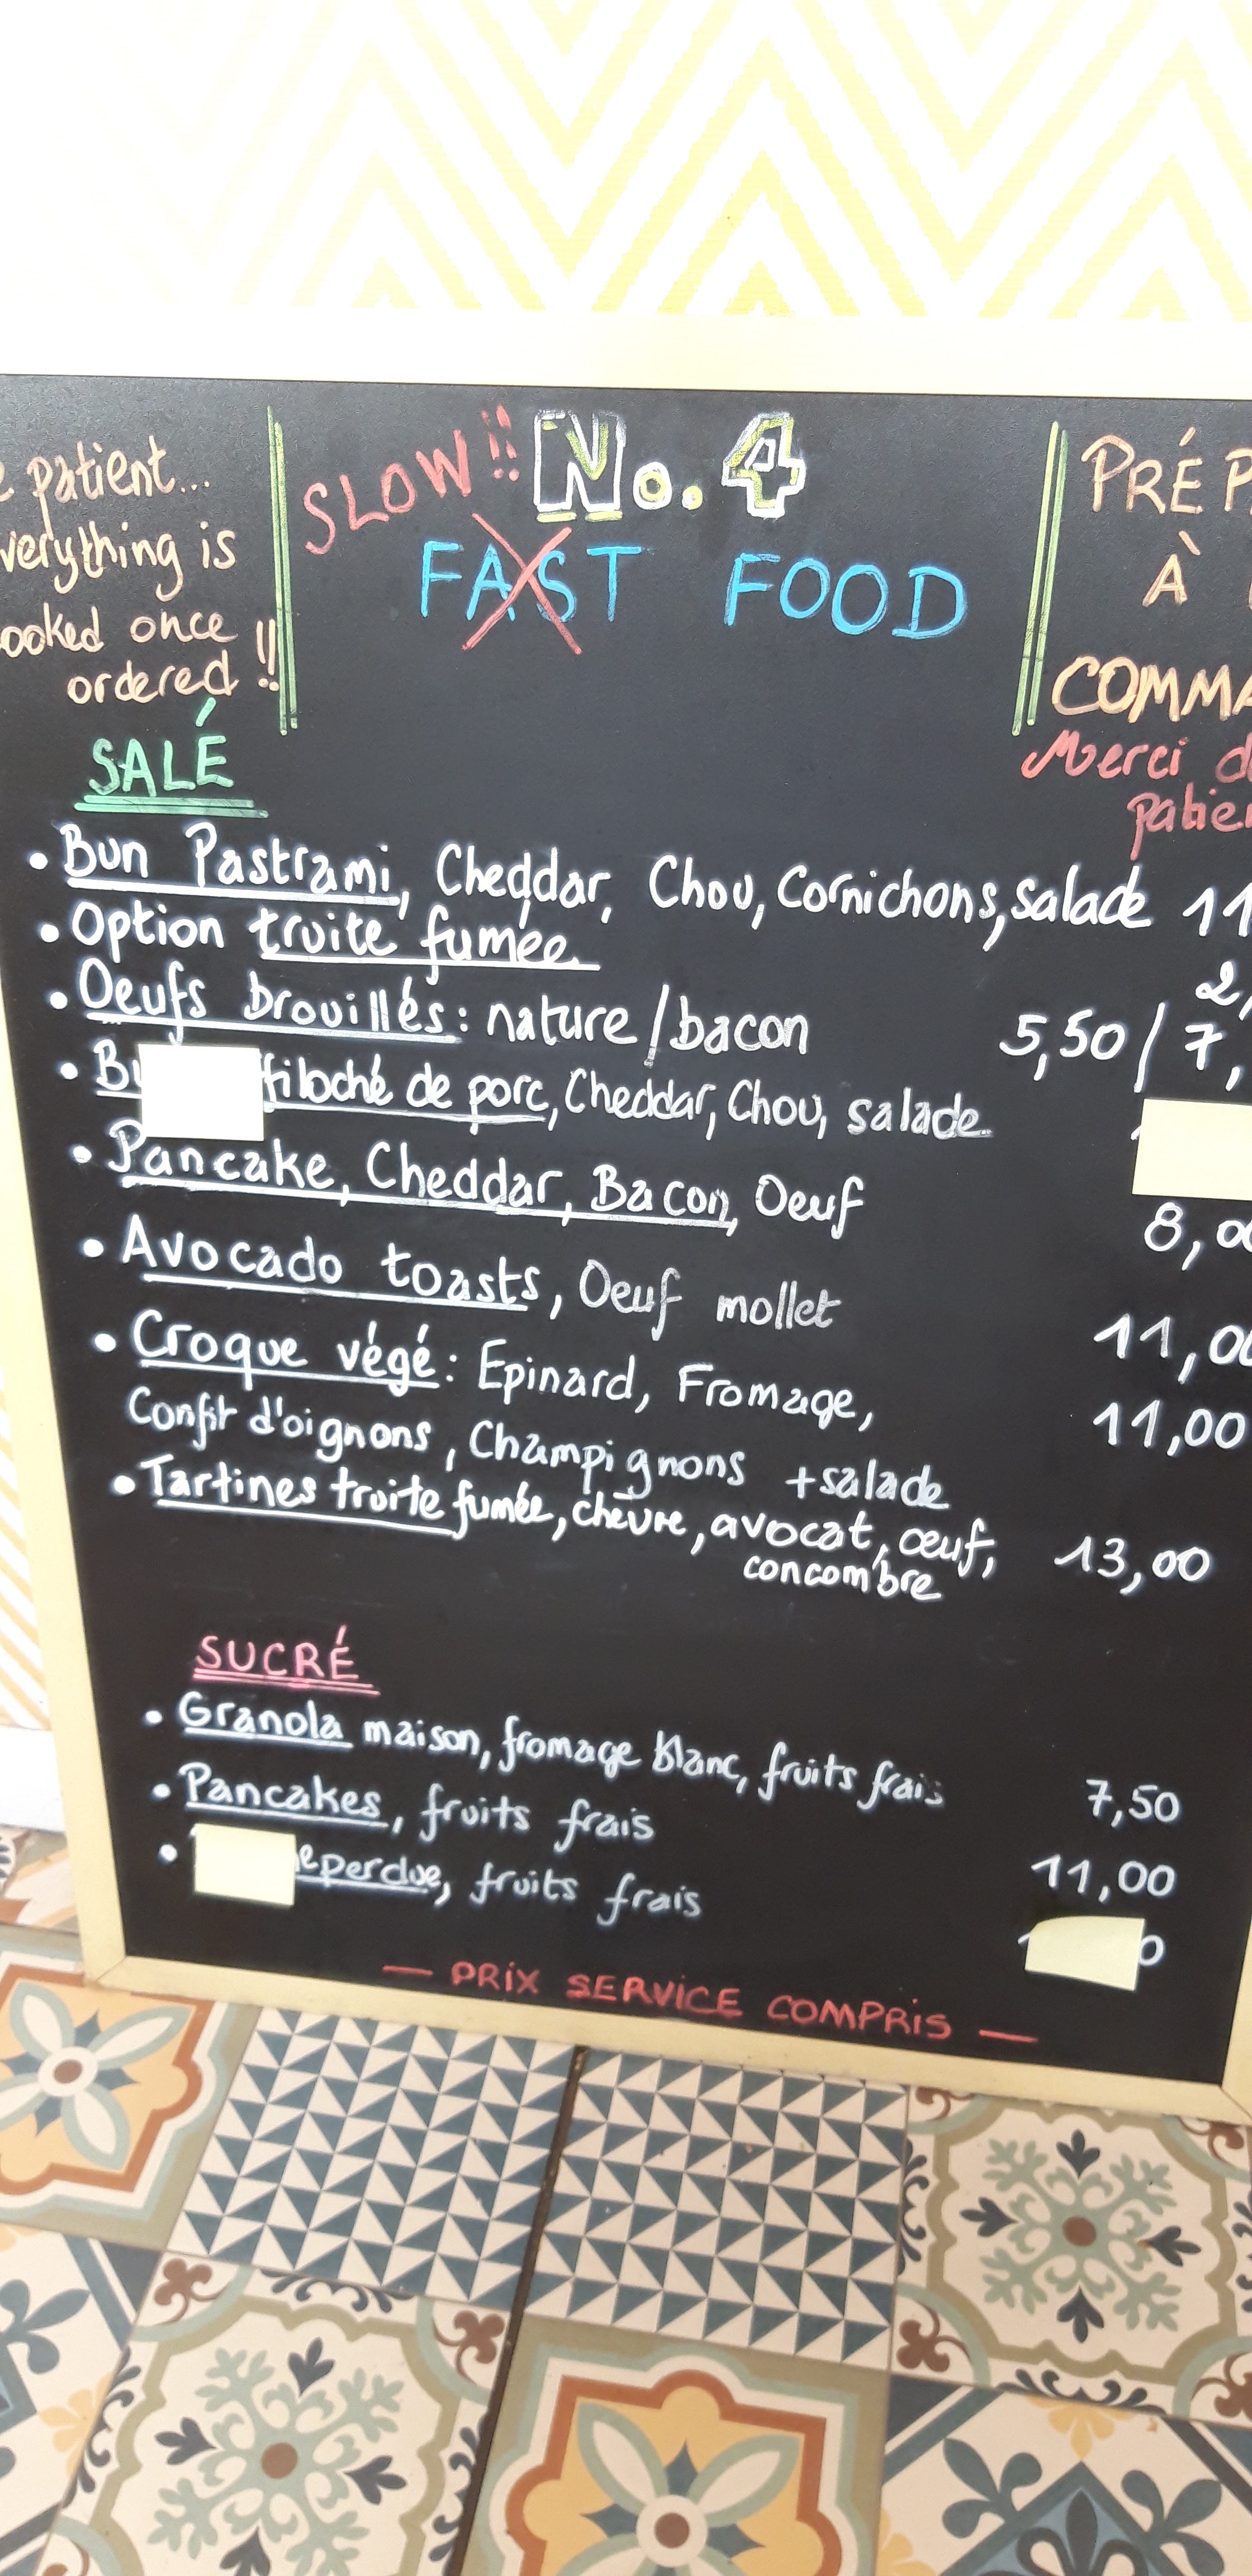 e patient...
verything is
ooked once
ordered !!
SLOW !! No. 4
FAST FOOD
PRÉP
À
COMMA
Merci d
patien
SALÉ
• Bun Pastrami, Cheddar, Chou, Cornichons, salade 11
• Option truite fumée 2,
• Oeufs brouillés : nature / bacon 5,50 / 7,
• Bu filoché de porc, Cheddar, Chou, salade
• Pancake, Cheddar, Bacon, Oeuf 8,00
• Avocado toasts, Oeuf mollet 11,00
• Croque végé : Epinard, Fromage, 11,00
Confit d'oignons, Champignons + salade
• Tartines truite fumée, chèvre, avocat, œuf, 13,00
concombre
SUCRÉ
• Granola maison, fromage blanc, fruits frais 7,50
• Pancakes, fruits frais 11,00
• e perdue, fruits frais 0
— PRIX SERVICE COMPRIS —